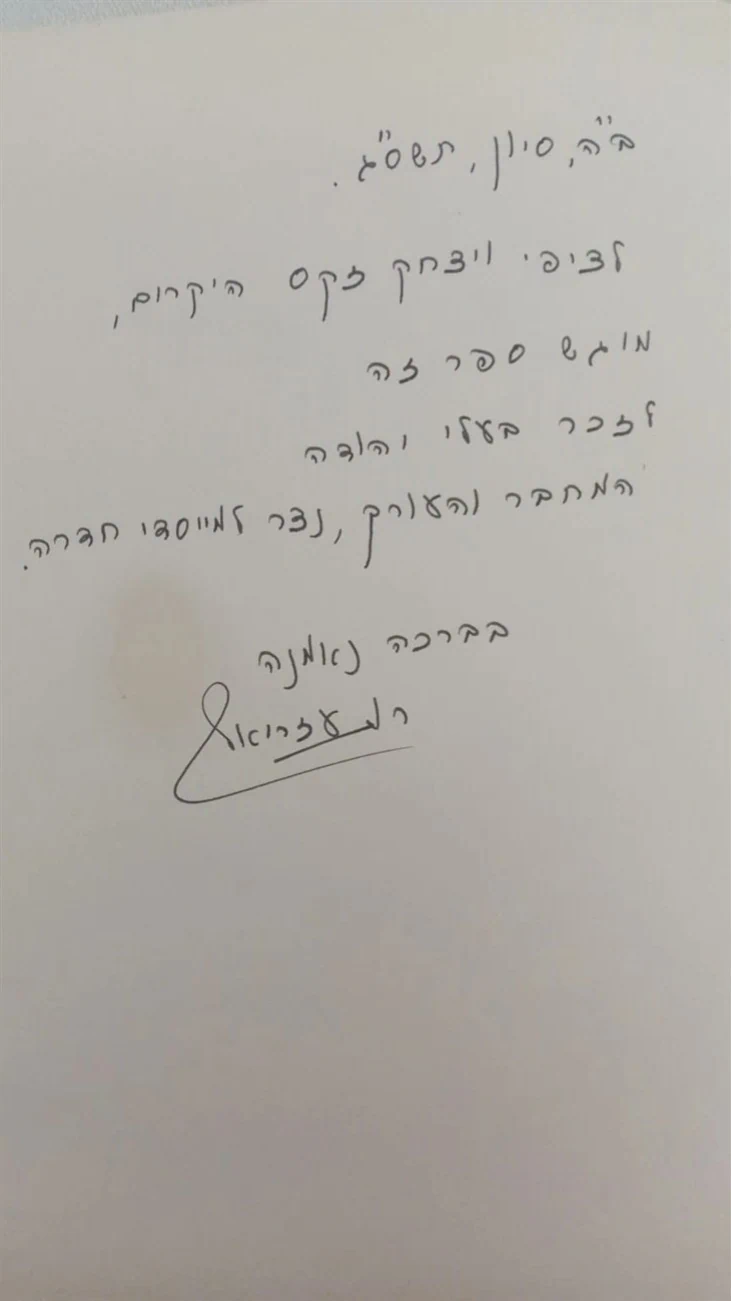 ב"ה, סיון, תשס"ג.
לציפי ויצחק זקס היקרים,
מוגש ספר זה
לזכר בעלי יהודה
המחבר והעורך, נצר למייסדי חדרה.
בברכה נאמנה
עזריאל